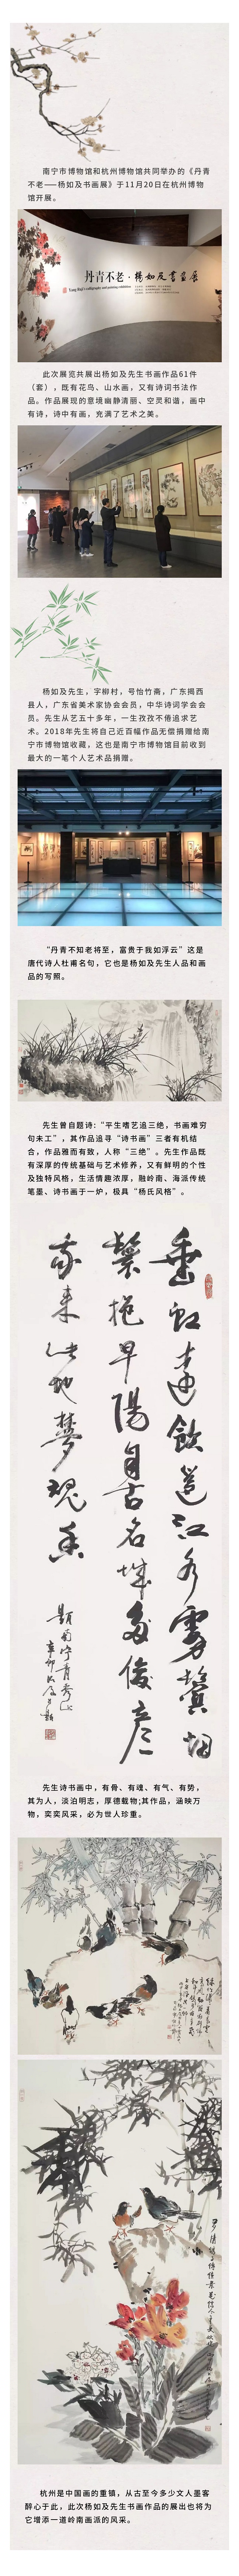 南宁市博物馆和杭州博物馆共同举办的《丹青
不老——杨如及书画展》于11月20日在杭州博物
馆开展。
丹青不老·杨如及书画展
Yang Ruji's calligraphy and painting exhibition
此次展览共展出杨如及先生书画作品61件
（套），既有花鸟、山水画，又有诗词书法作
品。作品展现的意境幽静清丽、空灵和谐，画中
有诗，诗中有画，充满了艺术之美。
杨如及先生，字柳村，号怡竹斋，广东揭西
县人，广东省美术家协会会员，中华诗词学会会
员。先生从艺五十多年，一生孜孜不倦追求艺
术。2018年先生将自己近百幅作品无偿捐赠给南
宁市博物馆收藏，这也是南宁市博物馆目前收到
最大的一笔个人艺术品捐赠。
“丹青不知老将至，富贵于我如浮云”这是
唐代诗人杜甫名句，它也是杨如及先生人品和画
品的写照。
先生曾自题诗：“平生嗜艺追三绝，书画难穷
句未工”，其作品追寻“诗书画”三者有机结
合，作品雅而有致，人称“三绝”。先生作品既
有深厚的传统基础与艺术修养，又有鲜明的个性
及独特风格，生活情趣浓厚，融岭南、海派传统
笔墨、诗书画于一炉，极具“杨氏风格”。
垂虹走饮邕江水雾鬓烟
鬟挹早阳自古名城多俊彦
我来此地梦魂香
题南宁青秀山
先生诗书画中，有骨、有魂、有气、有势，
其为人，淡泊明志，厚德载物;其作品，涵映万
物，奕奕风采，必为世人珍重。
杭州是中国画的重镇，从古至今多少文人墨客
醉心于此，此次杨如及先生书画作品的展出也将为
它增添一道岭南画派的风采。